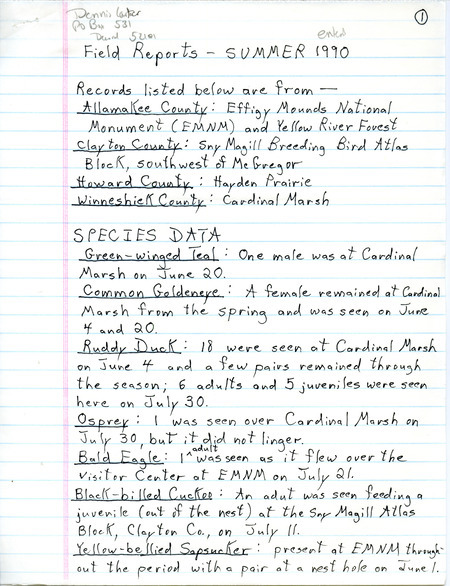 Dennis Carter
PO Box 531
Decorah 52101
①
enter
Field Reports - SUMMER 1990
Records listed below are from —
Allamakee County: Effigy Mounds National
Monument (EMNM) and Yellow River Forest
Clayton County: Sny Magill Breeding Bird Atlas
Block, southwest of McGregor
Howard County: Hayden Prairie
Winneshiek County: Cardinal Marsh
SPECIES DATA
Green-winged Teal: One male was at Cardinal
Marsh on June 20.
Common Goldeneye: A female remained at Cardinal
Marsh from the spring and was seen on June
4 and 20.
Ruddy Duck: 18 were seen at Cardinal Marsh
on June 4 and a few pairs remained through
the season; 6 adults and 5 juveniles were seen
here on July 30.
Osprey: 1 was seen over Cardinal Marsh on
July 30, but it did not linger.
Bald Eagle: 1 ^adult was seen as it flew over the
visitor Center at EMNM on July 21.
Black-billed Cuckoo: An adut was seen feeding a
juvenile (out of the nest) at the Sny Magill Atlas
Block, Clayton Co., on July 11.
Yellow-bellied Sapsucker: present at EMNM through-
out the period with a pair at a nest hole on June 1.